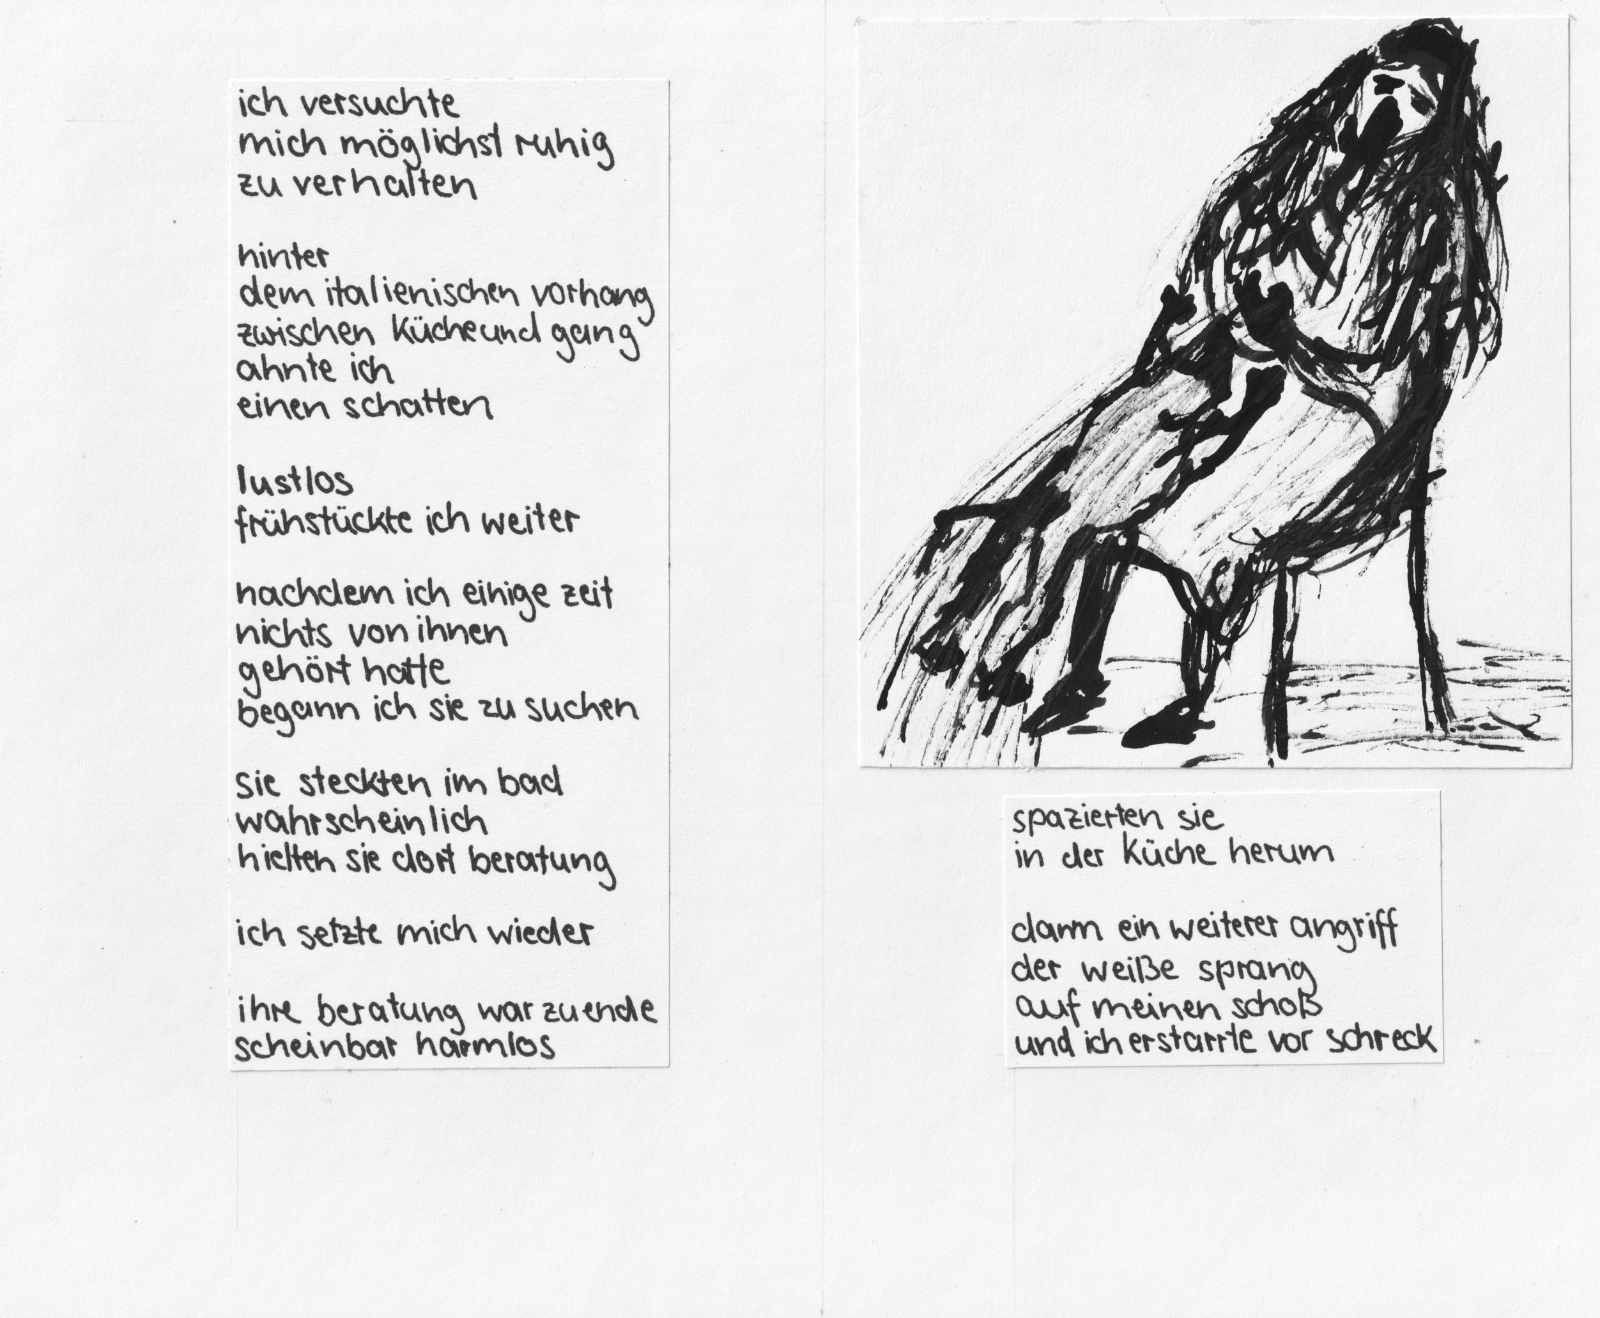 ich versuchte
mich möglichst ruhig
zu verhalten
hinter
dem italienischen vorhang
zwischen küche und gang
ahnte ich
einen schatten
lustlos
frühstückte ich weiter
nachdem ich einige zeit
nichts von ihnen
gehört hatte
begann ich sie zu suchen
sie steckten im bad
wahrscheinlich
hielten sie dort beratung
ich setzte mich wieder
ihre beratung war zuende
scheinbar harmlos
spazierten sie
in der küche herum
dann ein weiterer angriff
der weiße sprang
auf meinen schoß
und ich erstarrte vor schreck